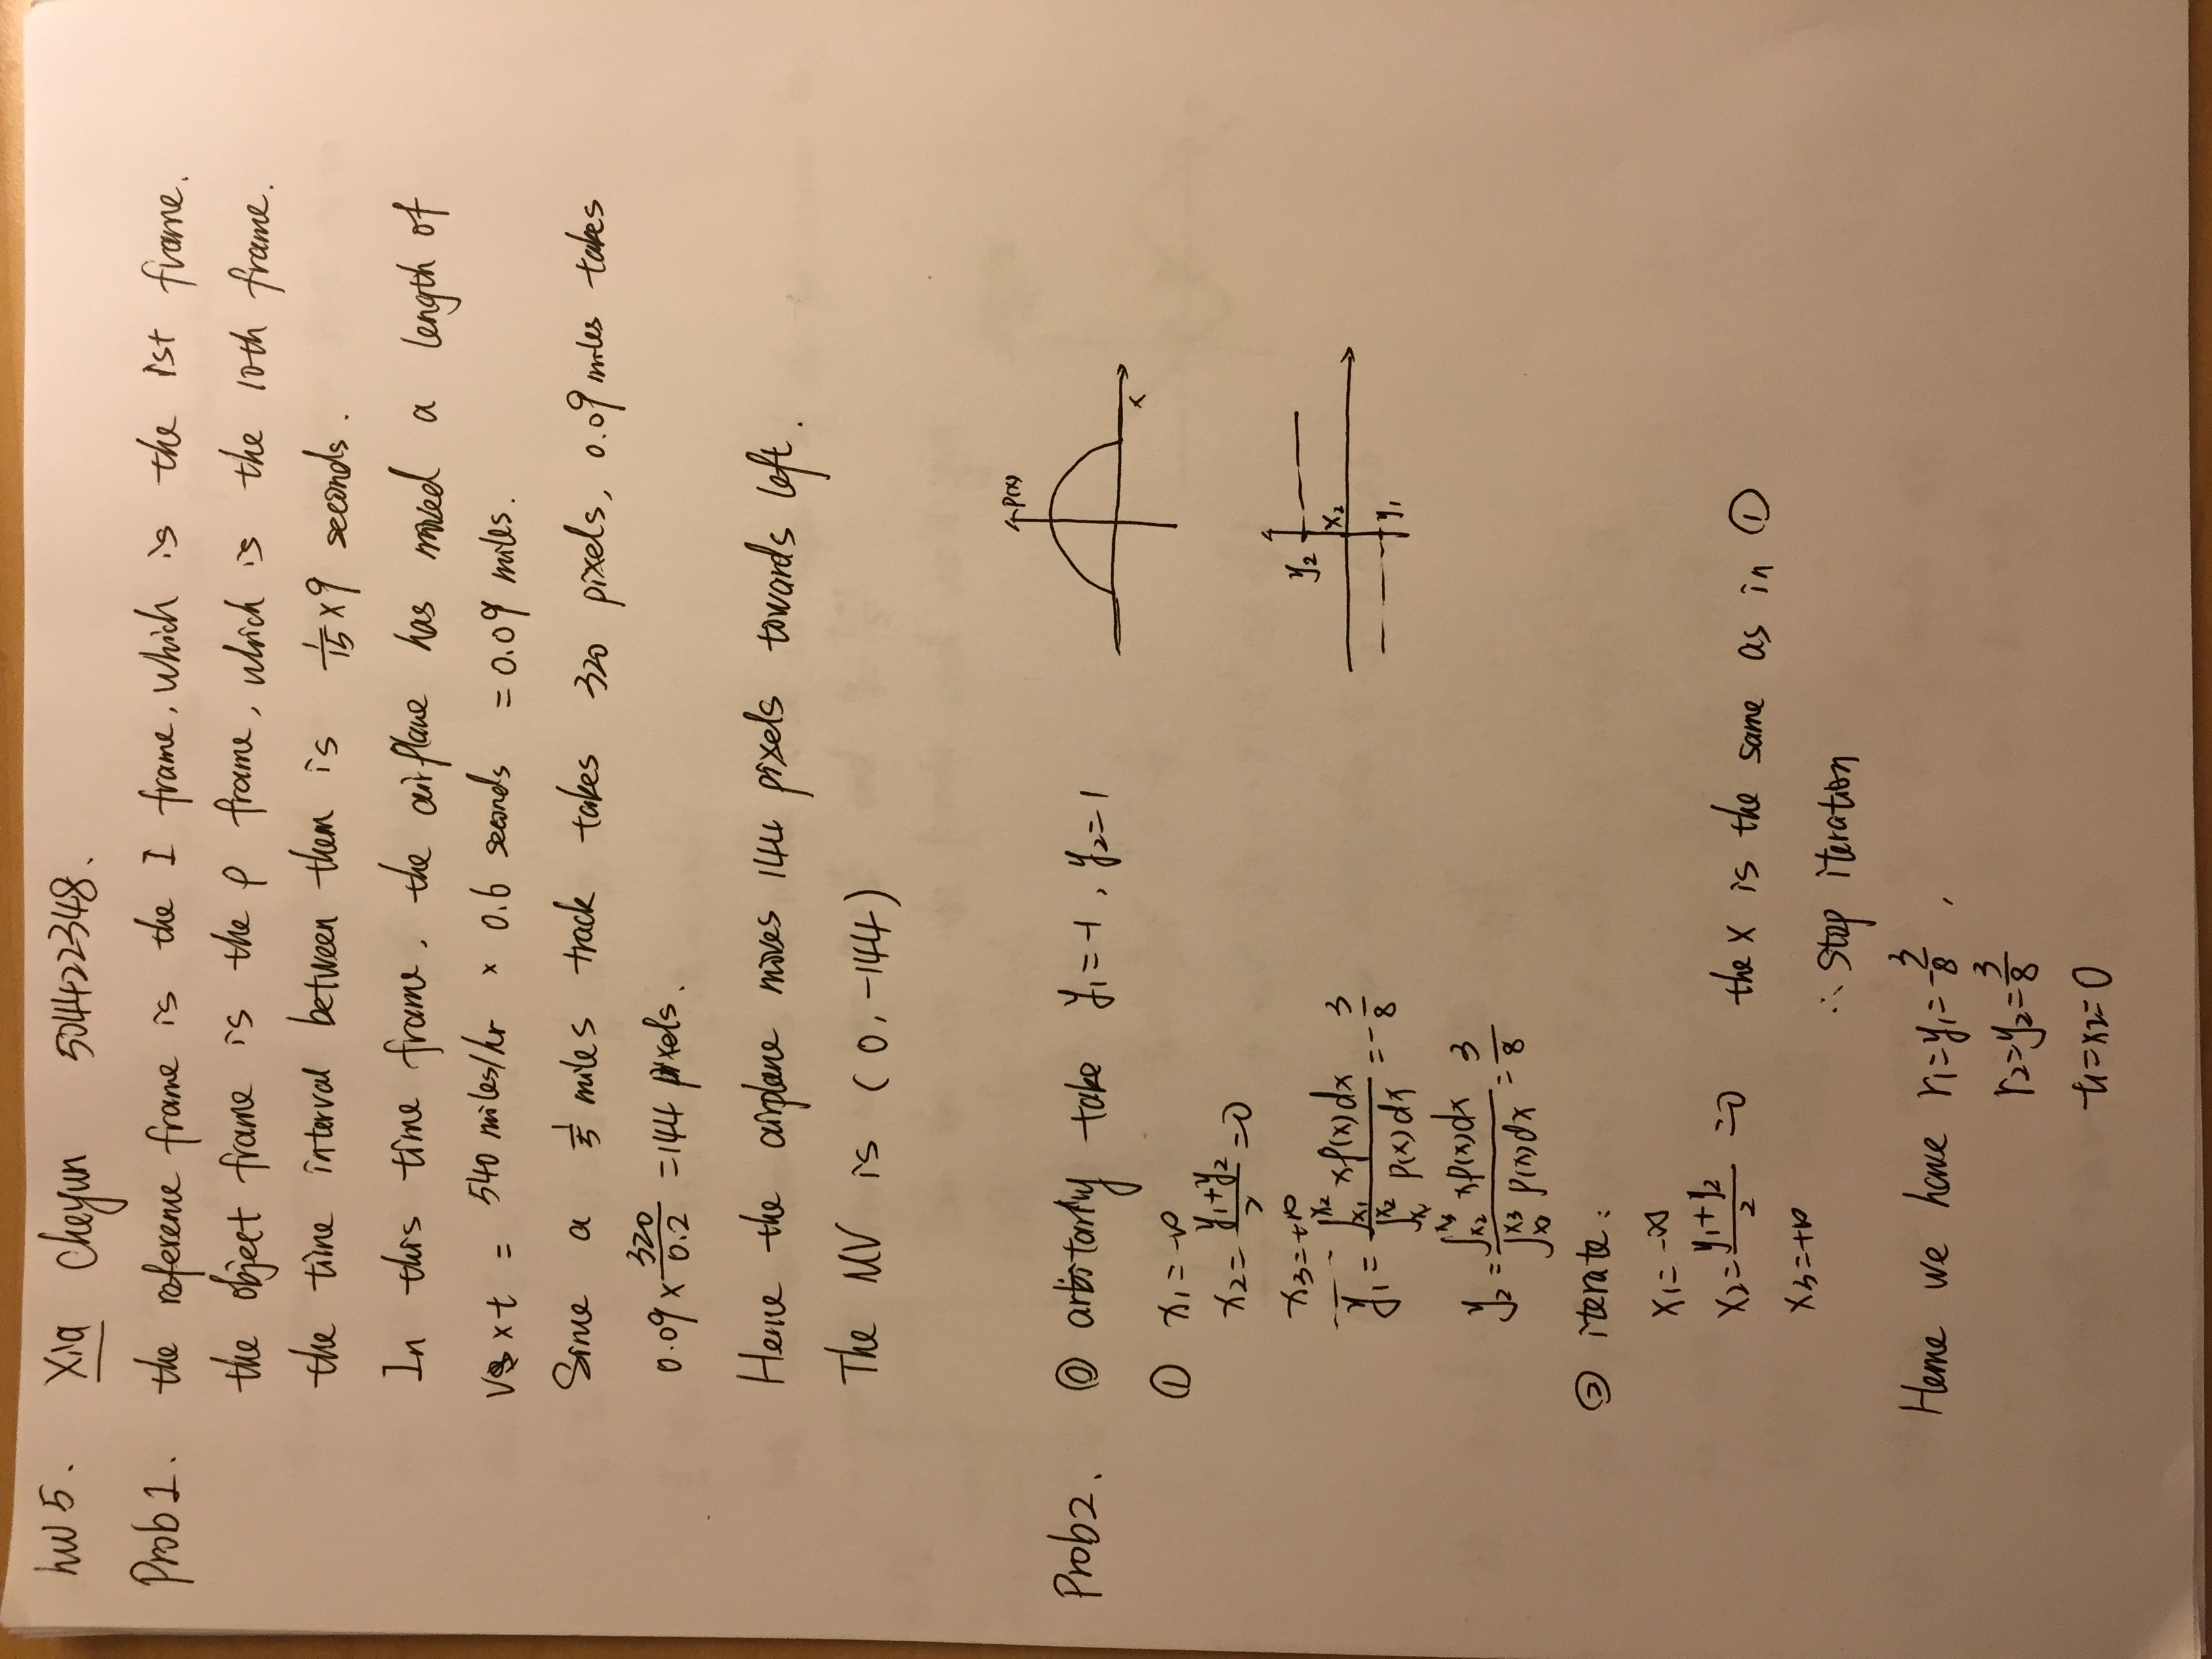 hw 5. Xia Cheyun 504422348.
Prob 1. the reference frame is the I frame, which is the 1st frame.
the object frame is the P frame, which is the 10th frame.
the time interval between them is 1/15 × 9 seconds.
In this time frame, the airplane has moved a length of
v × t = 540 miles/hr × 0.6 seconds = 0.09 miles.
Since a 1/5 miles track takes 320 pixels, 0.09 miles takes
0.09 × 320/0.2 = 144 pixels.
Hence the airplane moves 144 pixels towards left.
The MV is (0, -144)
P(x)
x
Prob 2. ⓪ arbitarily take y₁ = -1, y₂ = 1
① x₁ = -∞
x₂ = (y₁+y₂)/2 = 0
x₃ = +∞
y₁ = ∫_{x₁}^{x₂} xp(x)dx / ∫_{x₁}^{x₂} p(x)dx = -3/8
y₂ = ∫_{x₂}^{x₃} xp(x)dx / ∫_{x₂}^{x₃} p(x)dx = 3/8
y₂
x₂
y₁
② iterate:
x₁ = -∞
x₂ = (y₁+y₂)/2 = 0 the x is the same as in ①
x₃ = +∞
∴ Stop iteration
Hence we have r₁ = y₁ = -3/8,
r₂ = y₂ = 3/8
t₁ = x₂ = 0